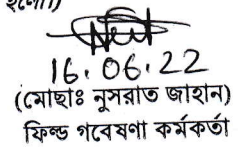 হলো।)
16.06.22
(মোছাঃ নুসরাত জাহান)
ফিল্ড গবেষণা কর্মকর্তা